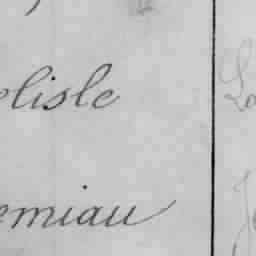 elisle
emiau